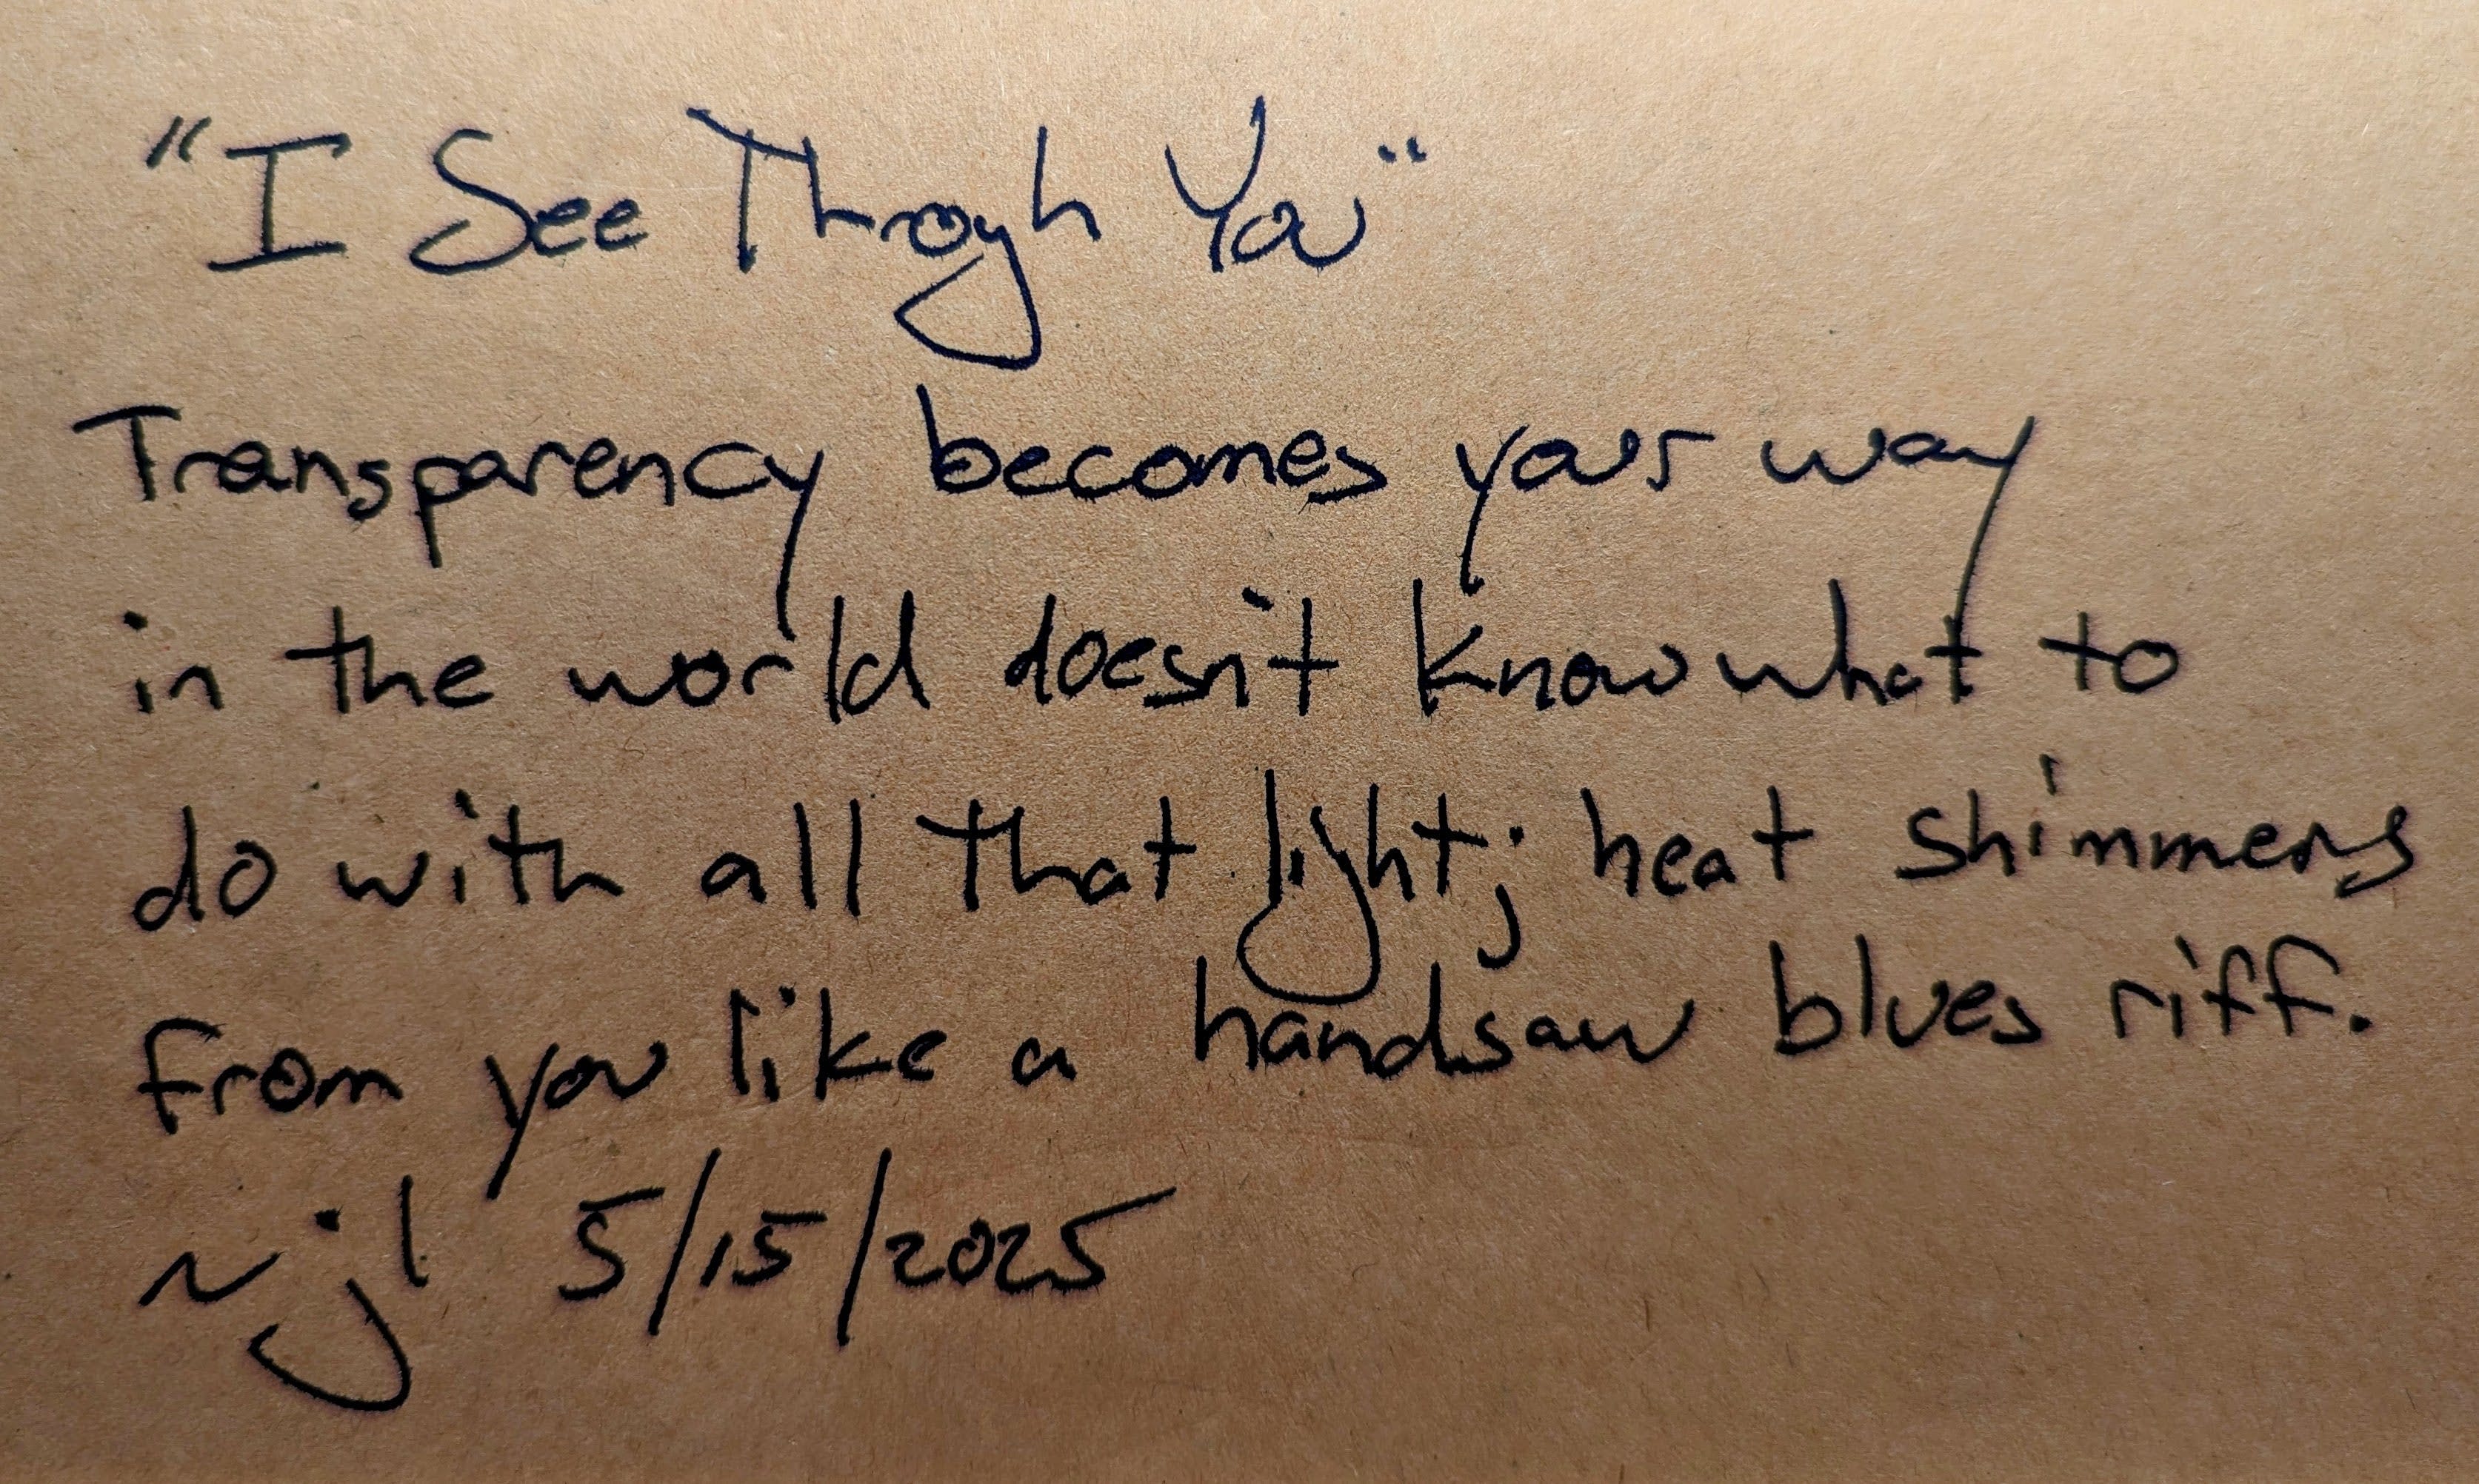 "I See Through You"
Transparency becomes your way
in the world doesn't know what to
do with all that light; heat shimmers
from you like a handsaw blues riff.
njl 5/15/2025